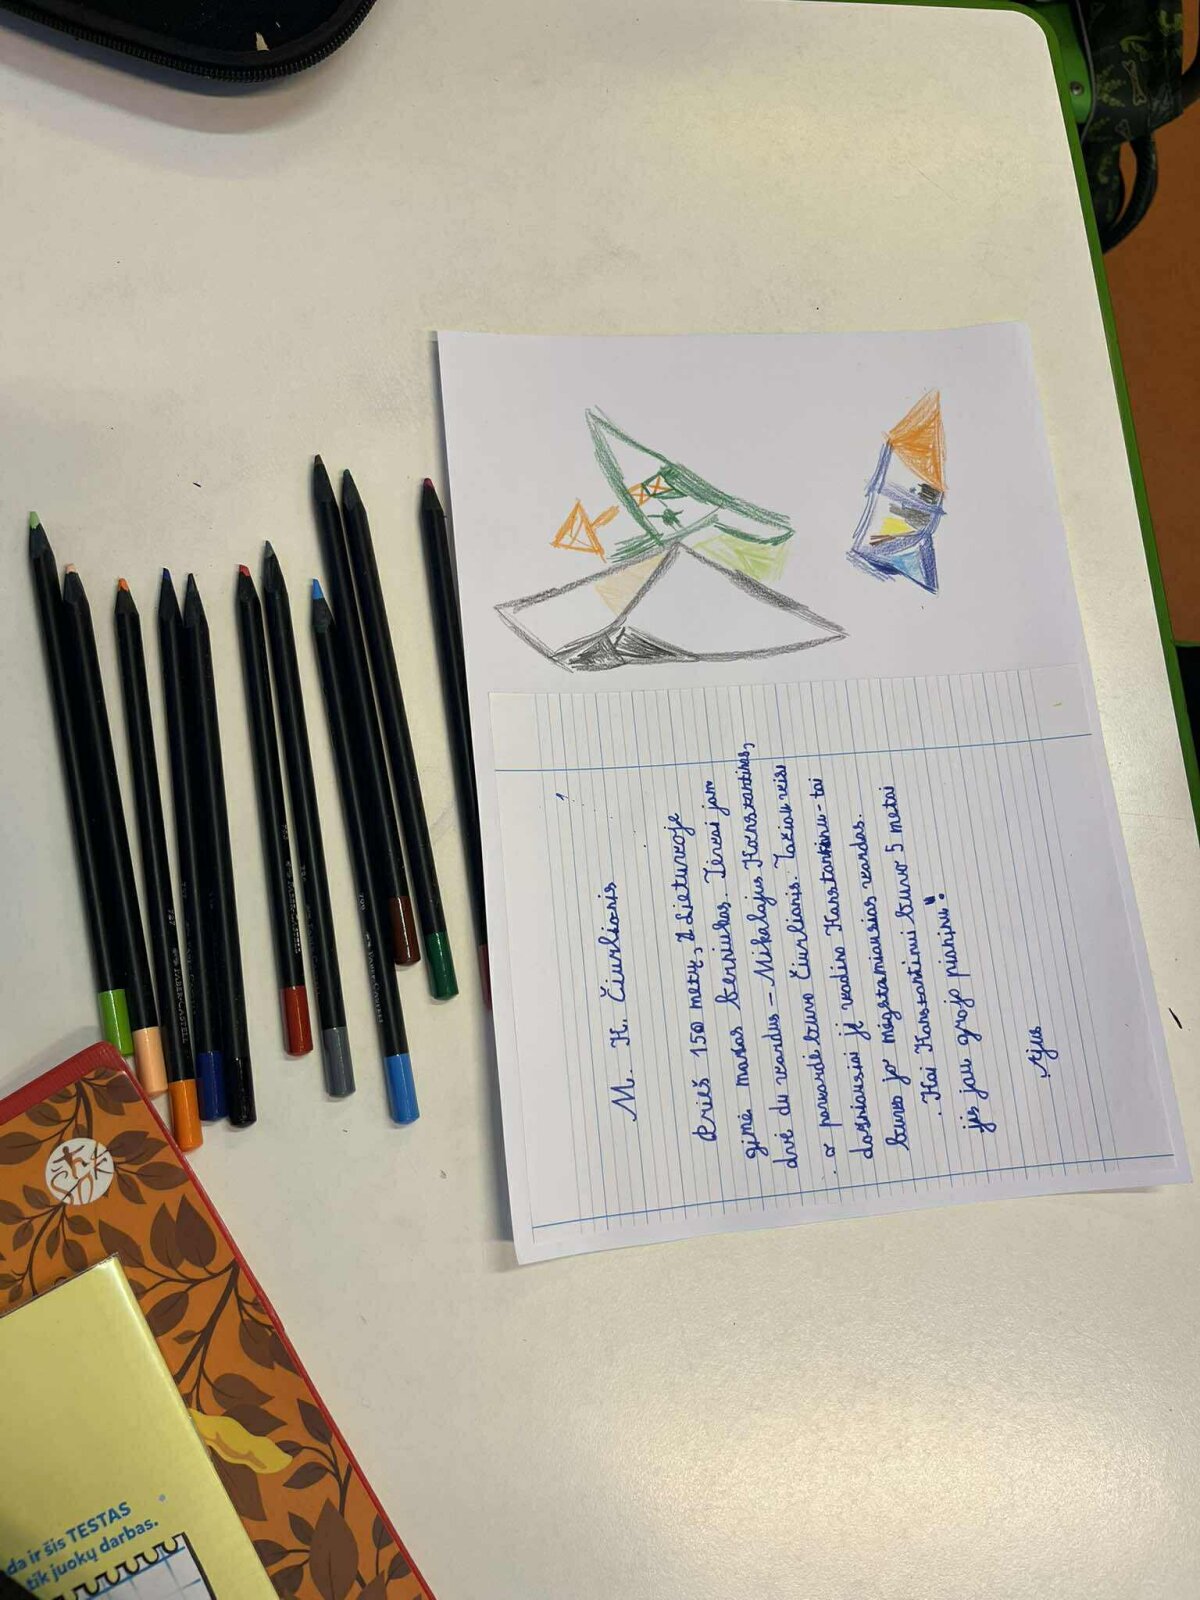 M. K. Čiurlionis
Prieš 150 metų, Lietuvoje
gimė mažas berniukas. Tėvai jam
davė du vardus - Mikalojus Konstantinas,
o pavardė buvo Čiurlionis. Tačiau visi
dažniausiai jį vadino Konstantinu - tai
buvo jo mėgstamiausias vardas.
Kai Konstantinui buvo 5 metai
jis jau grojo pianinu!
da ir šis TESTAS
tik juokų darbas.
FABER-CASTELL